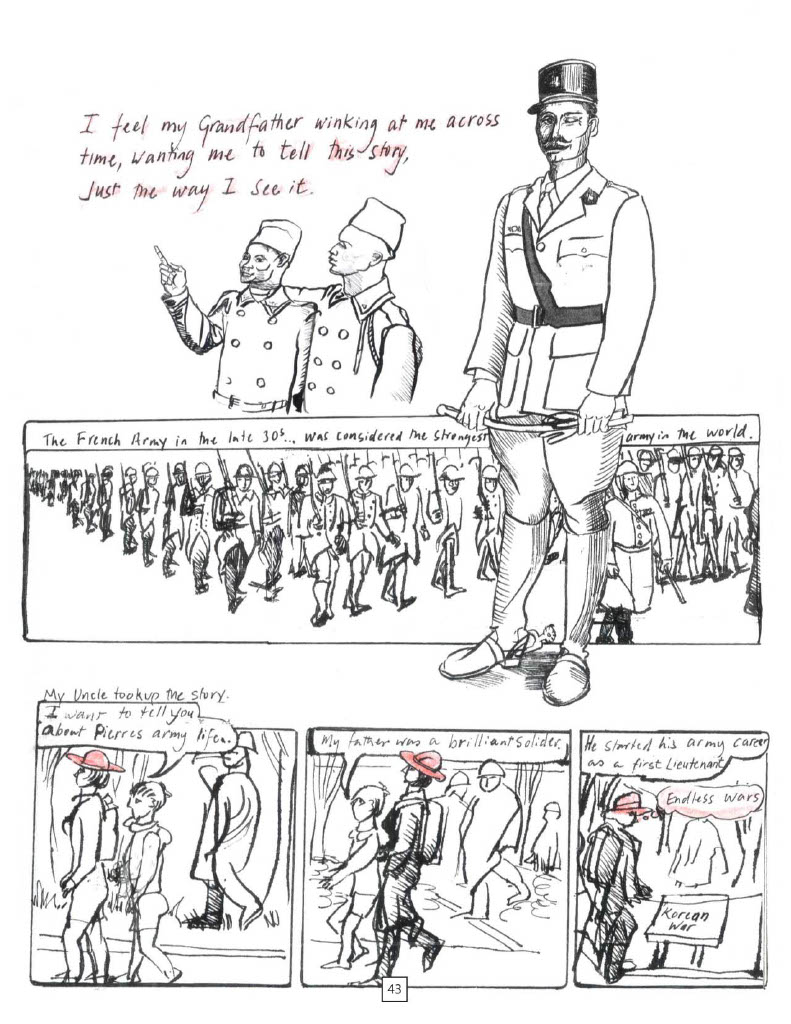 I feel my Grandfather winking at me across
time, wanting me to tell this story,
Just the way I see it.
The French Army in the late 30s.., was considered the strongest army in the world.
My Uncle took up the story.
I want to tell you
about Pierres army life.
My father was a brilliant solider.
He started his army career
as a first Lieutenant
Endless wars
Korean
War
43